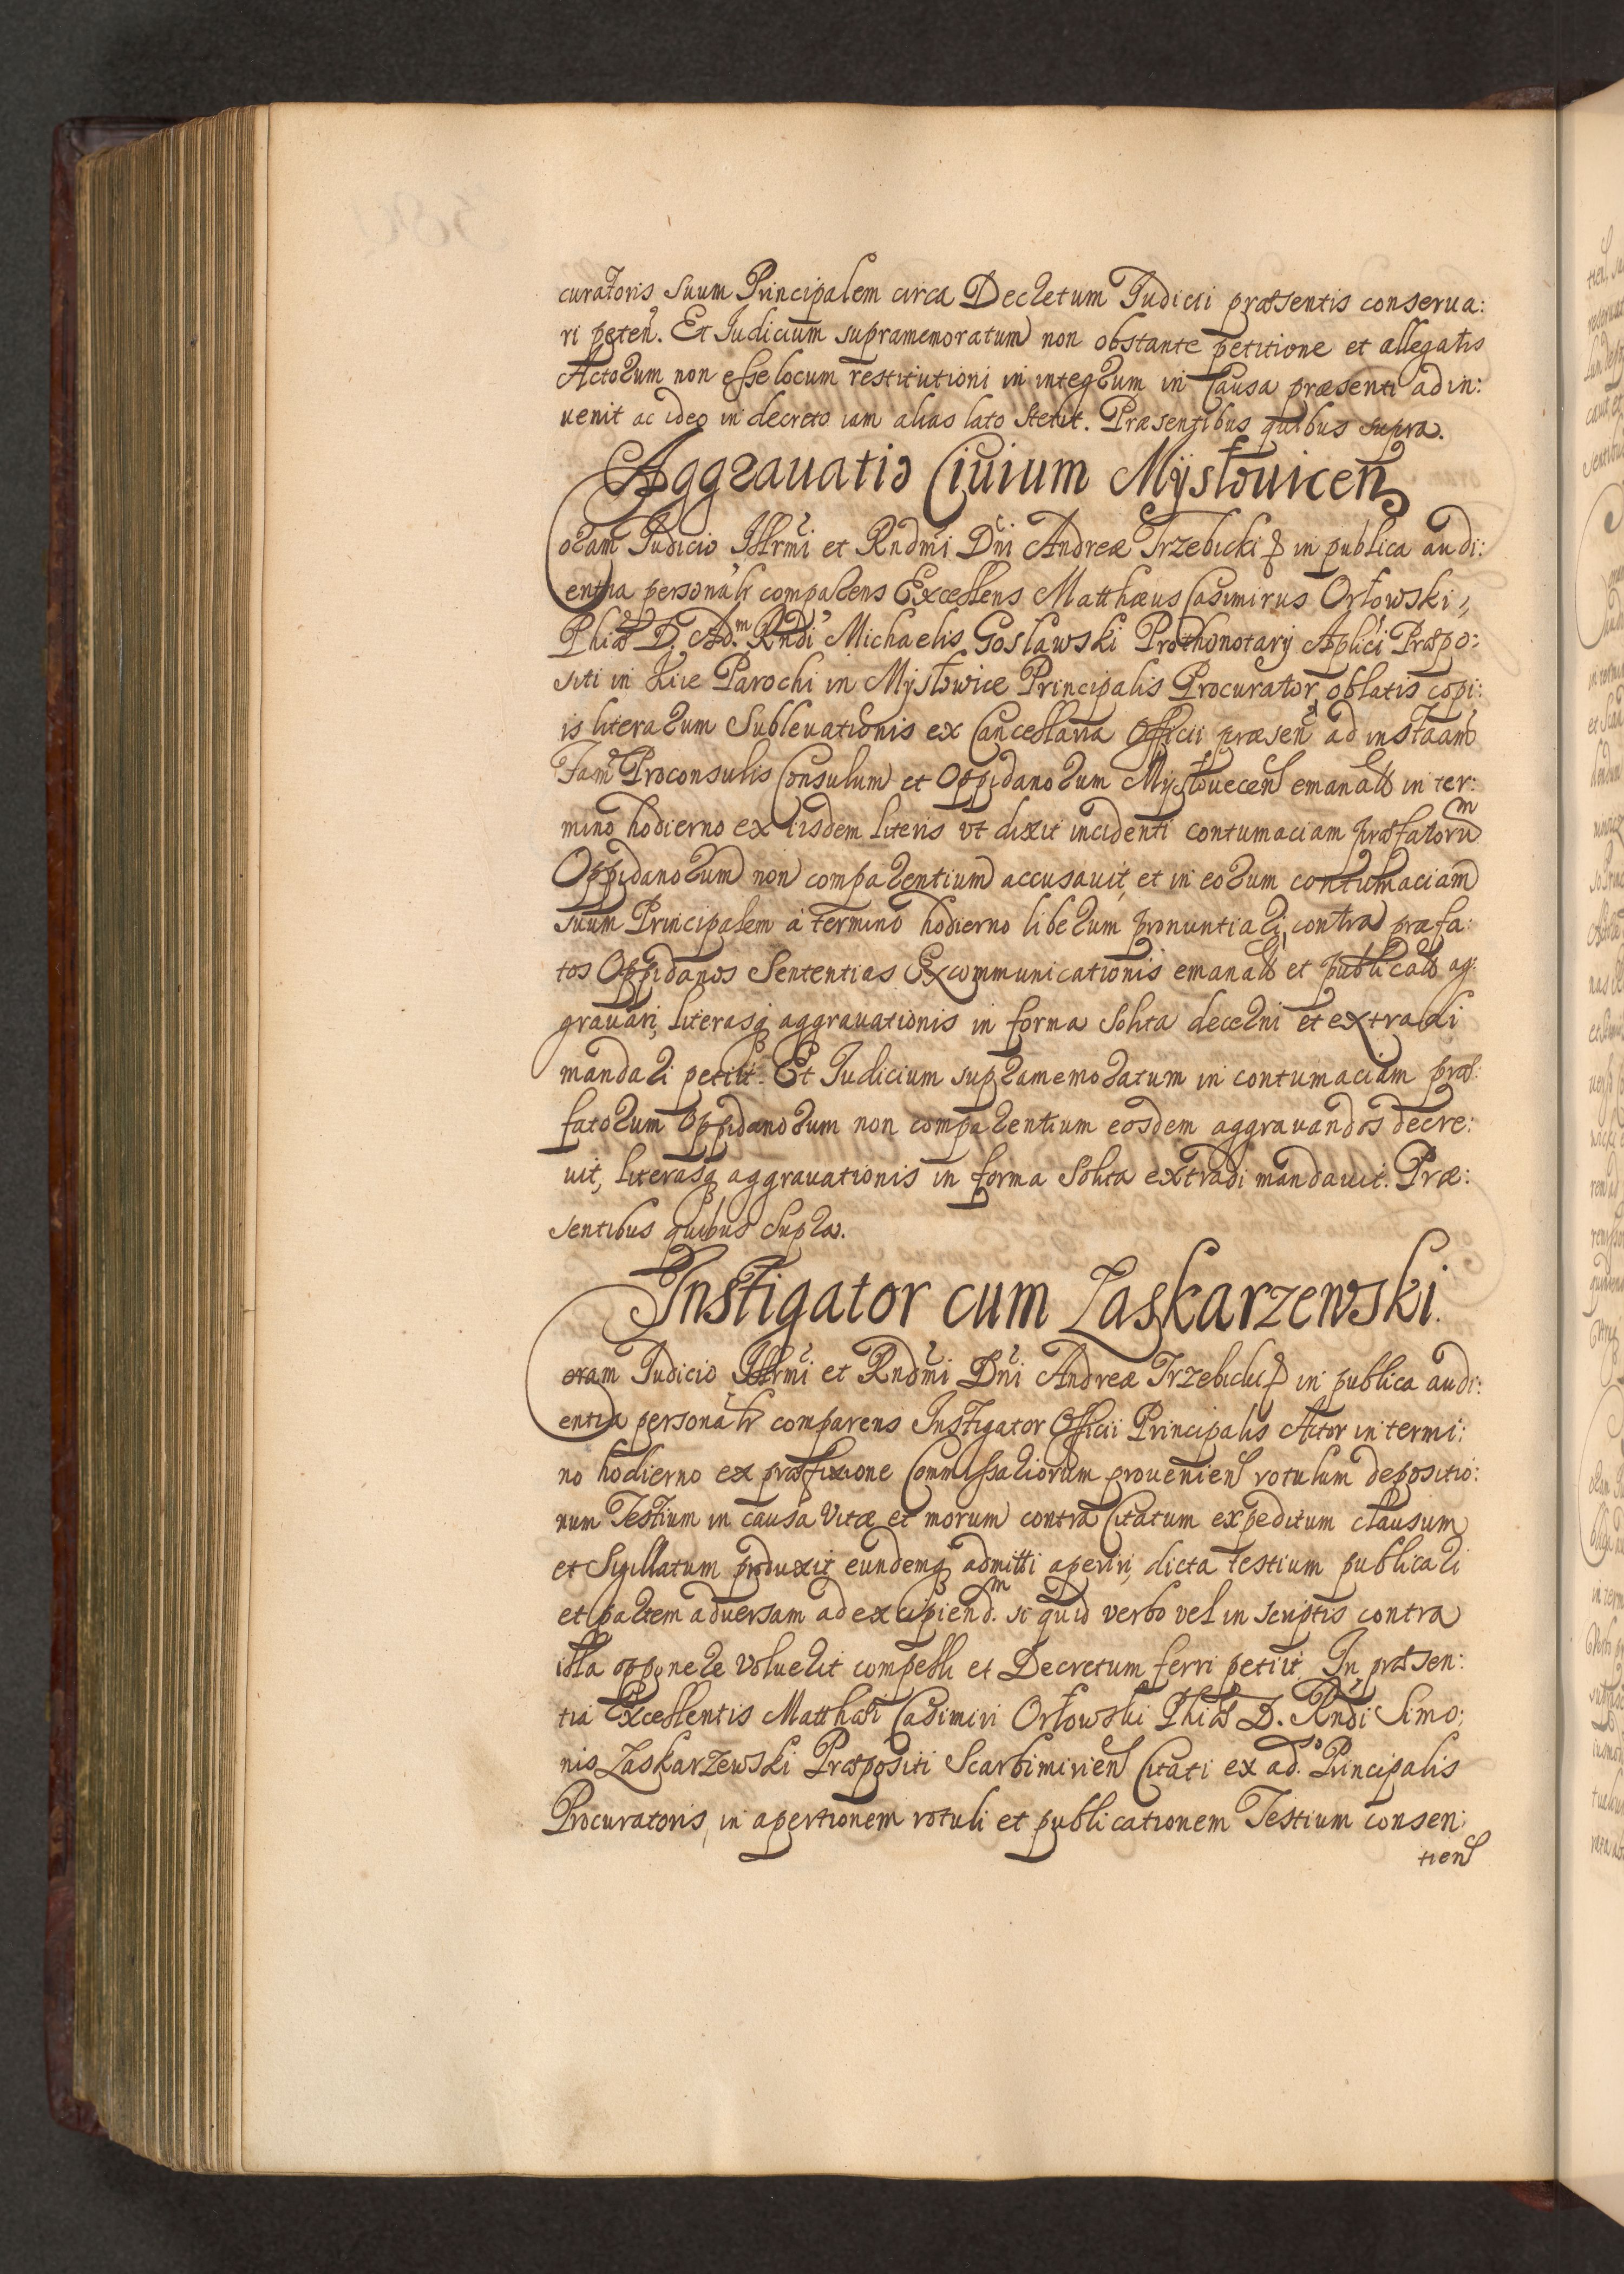 curatoris suum Principalem circa Decretum Iudicii præsentis conserua:
ri peten. Et Iudicium supramemoratum non obstante petitione et allegatis
Actorum non esse locum restitutioni in integrum in Causa præsenti adin:
uenit ac ideo in decreto iam alias lato stetit. Præsentibus quibus supra.
Aggrauatio Ciuium Mysłouicen
Coram Iudicio Illrmi et Rndmi Dni Andreæ Trzebicki in publica audi:
entia personalr comparens Excellens Matthæus Casimirus Orłowski,
Phiæ D. Ad.m Rndi Michaelis Gosławski Prothonotary Aplici Præpo:
siti in Parochi in Mysłowice Principalis Procurator, oblatis copi:
is literarum Subleuationis ex Cancellaria Officii præsen ad instaam
Fam Proconsulis Consulum et Oppidanorum Mysłouecen emanat in ter:
mino hodierno ex iisdem literis vt dixit incidenti contumaciam præfatorum
Oppidanorum non comparentium accusauit, et in eorum contumaciam
suum Principalem à termino hodierno liberum pronuntiari, contra præfa:
tos Oppidanos Sententias Excommunicationis emanat et publicat ag:
grauari, literasq aggrauationis in forma solita decerni et extradi
mandari petiit. Et Iudicium supramemoratum in contumaciam præ:
fatorum Oppidanorum non comparentium eosdem aggrauandos decre:
uit, literasq aggrauationis in forma solita extradi mandauit. Præ:
sentibus quibus supra.
Instigator cum Zaskarzewski.
Coram Iudicio Illrmi et Rndmi Dni Andreæ Trzebicki in publica audi:
entia personalr comparens Instigator Officii Principalis Actor in termi:
no hodierno ex præfixione Commissariorum prouenien rotulum depositio:
num Testium in causa Vitæ et morum contra Citatum expeditum clausum
et Sigillatum produxit eundemq admitti aperiri, dicta testium publicari
et partem aduersam ad excipiend.m si quid verbo vel in scriptis contra
illa opponere voluerit compelli et Decretum ferri petiit. In præsen:
tia Excellentis Matthæi Casimiri Orłowski Phiæ D. Rndi Simo:
nis Zaskarzewski Præpositi Scarbimirien Citati ex ad.so Principalis
Procuratoris, in apertionem rotuli et publicationem Testium consen:
tien